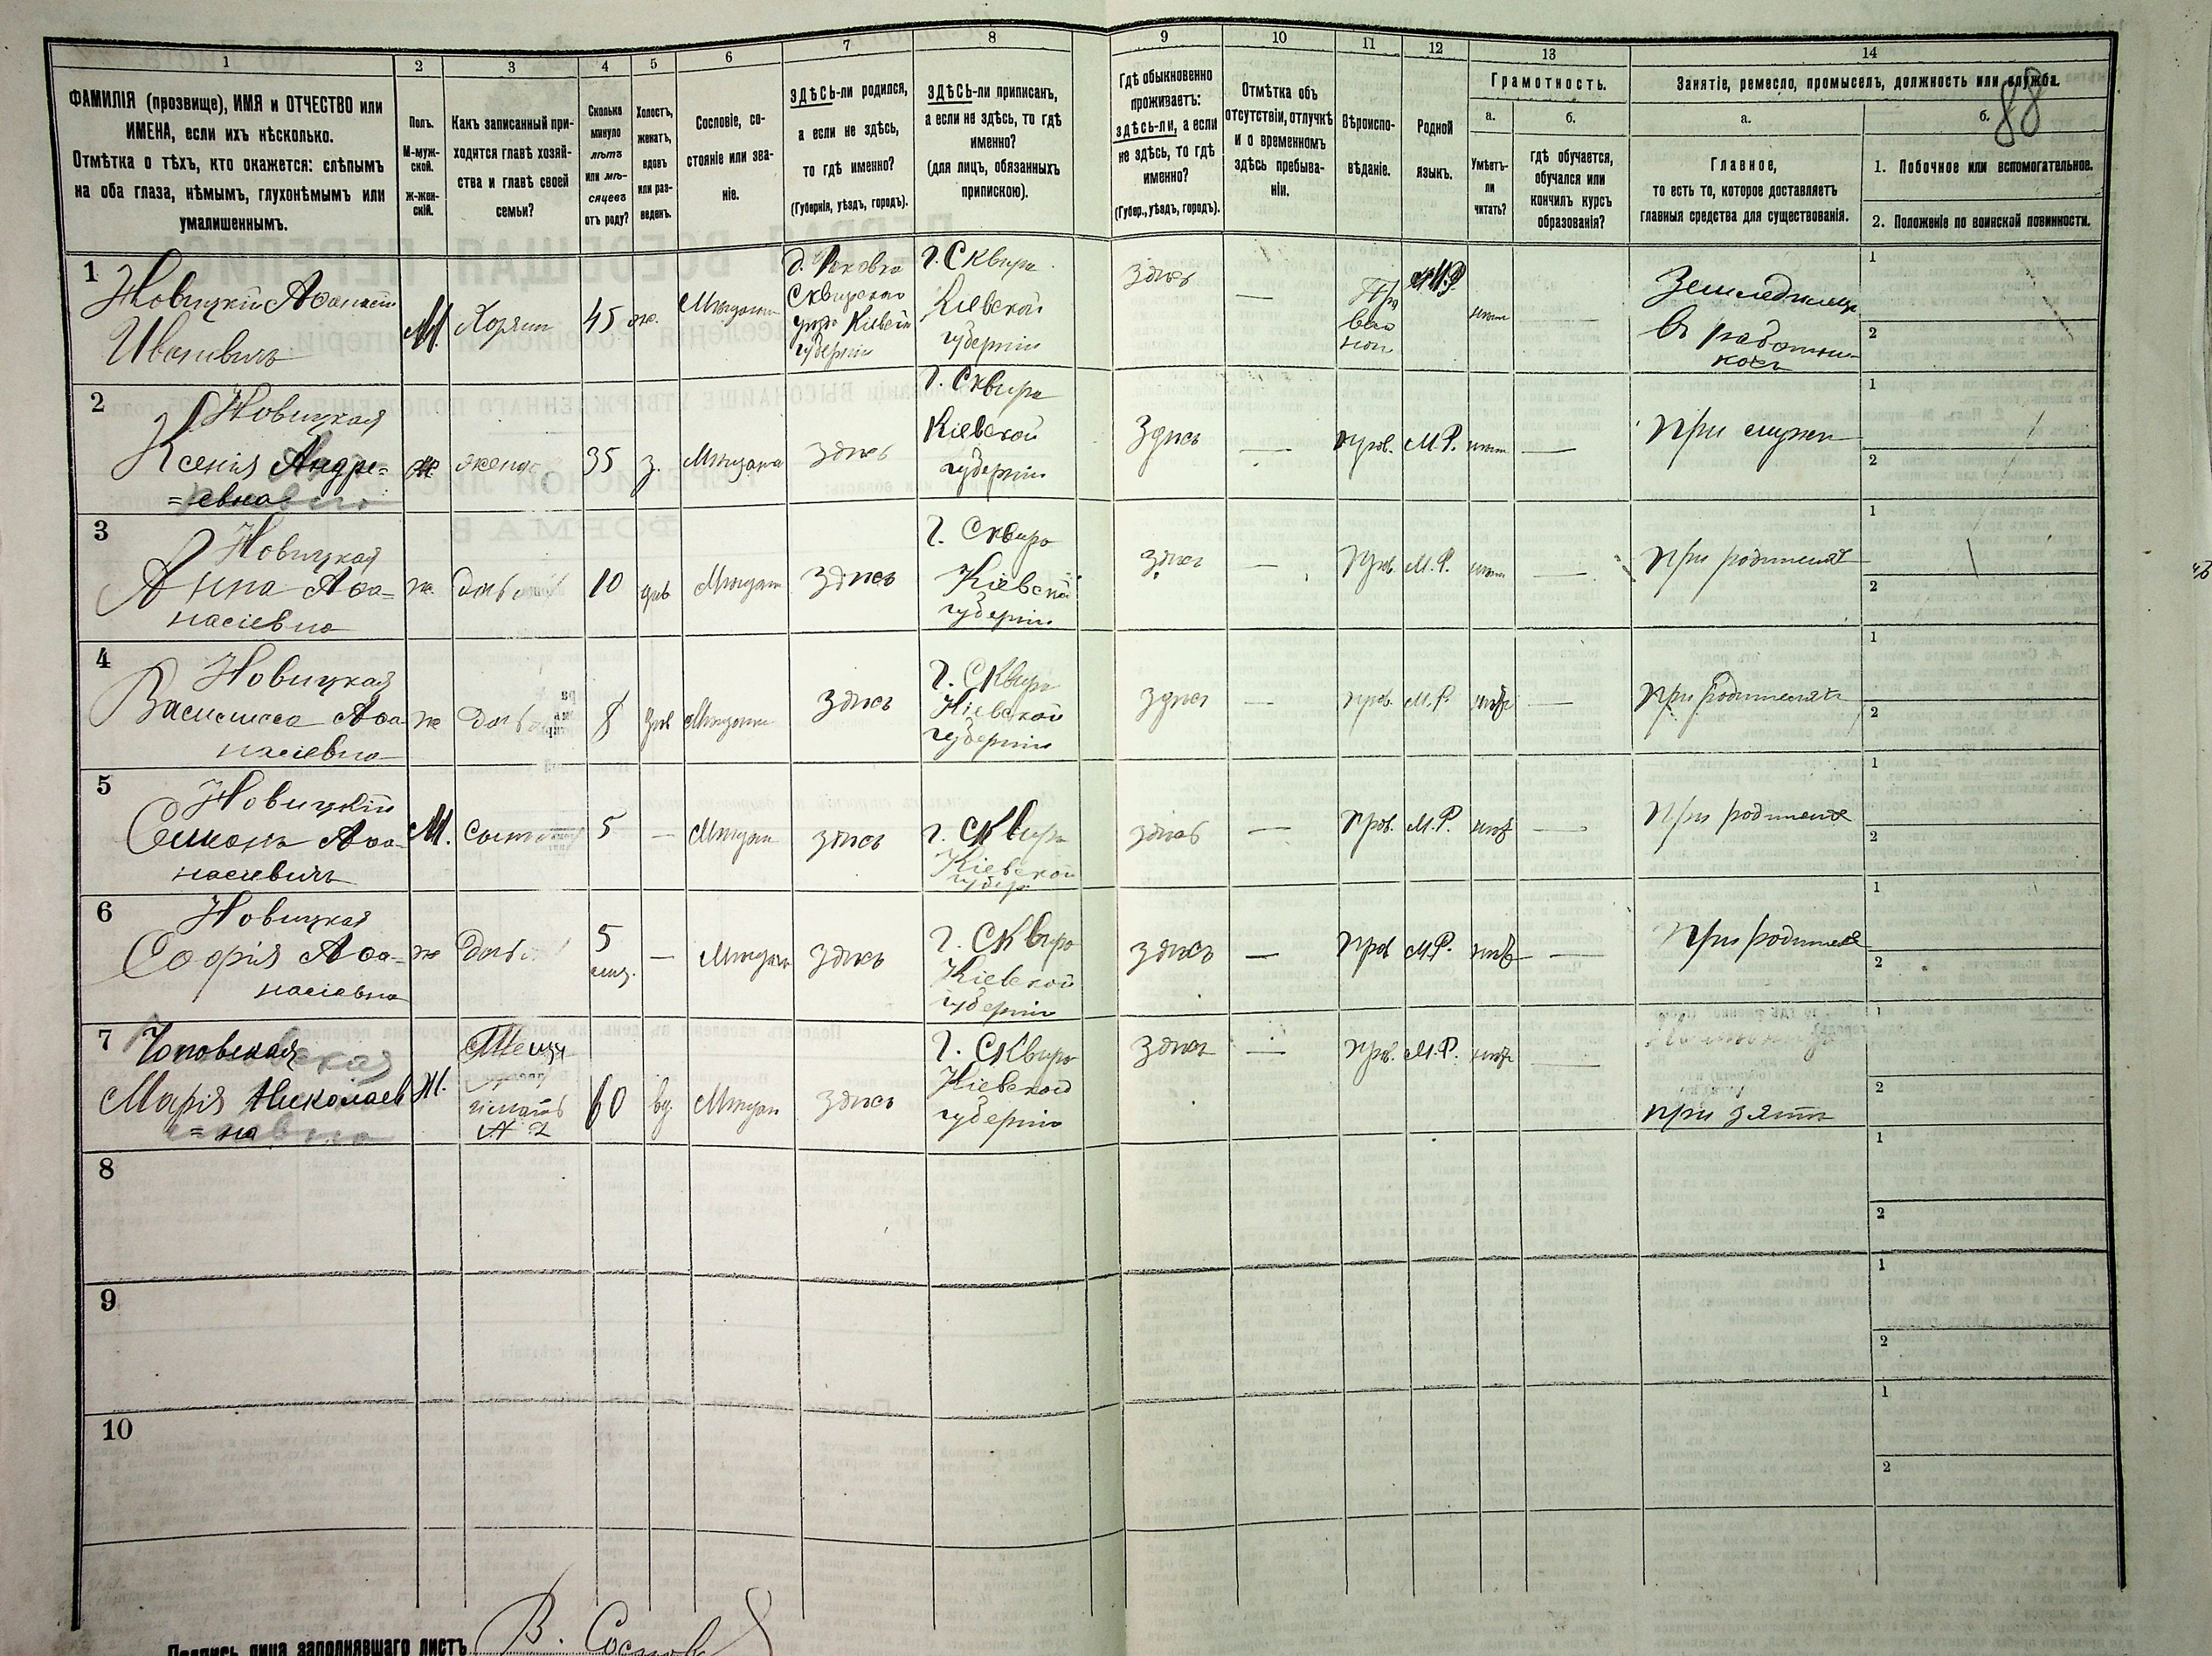 1 2 3 4 5 6 7 8 9 10 11 12 13 14
ФАМИЛІЯ (прозвище), ИМЯ и ОТЧЕСТВО или
ИМЕНА, если ихъ нѣсколько.
Отмѣтка о тѣхъ, кто окажется: слѣпымъ
на оба глаза, нѣмымъ, глухонѣмымъ или
умалишеннымъ.
Полъ.
М-муж-
ской.
Ж-жен-
скій.
Какъ записанный при-
ходится главѣ хозяй-
ства и главѣ своей
семьи?
Сколько
минуло
лѣтъ
или мѣ-
сяцевъ
отъ роду?
Холостъ,
женатъ,
вдовъ
или раз-
веденъ.
Сословіе, со-
стояніе или зва-
ніе.
ЗДѢСЬ-ли родился,
а если не здѣсь,
то гдѣ именно?
(Губернія, уѣздъ, городъ).
ЗДѢСЬ-ли приписанъ,
а если не здѣсь, то гдѣ
именно?
(для лицъ, обязанныхъ
припискою).
Гдѣ обыкновенно
проживаетъ:
здѣсь-ли, а если
не здѣсь, то гдѣ
именно?
(Губер., уѣздъ, городъ).
Отмѣтка объ
отсутствіи, отлучкѣ
и о временномъ
здѣсь пребыва-
ніи.
Вѣроиспо-
вѣданіе.
Родной
языкъ.
Грамотность.
а.
Умѣетъ-
ли
читать?
б.
гдѣ обучается,
обучался или
кончилъ курсъ
образованія?
Занятіе, ремесло, промыселъ, должность или служба.
88
а.
Главное,
то есть то, которое доставляетъ
главныя средства для существованія.
б.
1. Побочное или вспомогательное.
2. Положеніе по воинской повинности.
1
Новицкій Аѳанасій
Ивановичъ
М. Хозяин 45 ж. Мѣщанин
Сквирскаго
уѣзда Кіевской
губерніи
г. Сквира
Кіевской
губерніи
здѣсь —
Пра
вос
лав
М.Р.
нѣт —
Земледѣлецъ
въ работни-
кахъ
1
2
2
Новицкая
Ксенія Андре=
=евна
Ж жена 35 з. Мѣщанка здѣсь
г. Сквира
Кіевской
губерніи
здѣсь — прав. М.Р. нѣт — при мужѣ
1
2
3
Новицкая
Анна Аѳа=
насіевна
ж. дочь 10 дѣв Мѣщан здѣсь
г. Сквира
Кіевской
губерніи
здѣсь — прав. М.Р. нѣт — при родителях
1
2
4
Новицкая
Василиса Аѳа
насіевна
ж дочь 8 дѣв Мѣщанка здѣсь
г. Сквира
Кіевской
губерніи
здѣсь — прав. М.Р. нѣт — при родителяхъ
1
2
5
Новицкій
Семенъ Аѳа-
насіевичъ
М. сынъ 5 — Мѣщан здѣсь
г. Сквира
Кіевской
губер.
здѣсь — прав. М.Р. нѣт — при родителях
1
2
6
Новицкая
Софія Аѳа-
насіевна
ж дочь 5
мѣс.
— Мѣщан здѣсь
г. Сквира
Кіевской
губерніи
здѣсь — прав М.Р. нѣт — при родителях
1
2
7
Марія Николаев
=на
Ж.
Теща
№ 1
60 вд. Мѣщан здѣсь
г. Сквира
Кіевской
губерніи
здѣсь — прав. М.Р. нѣт —
при зятѣ
1
2
8
1
2
9
1
2
10
1
2
Подпись лица заполнявшаго листъ
В.